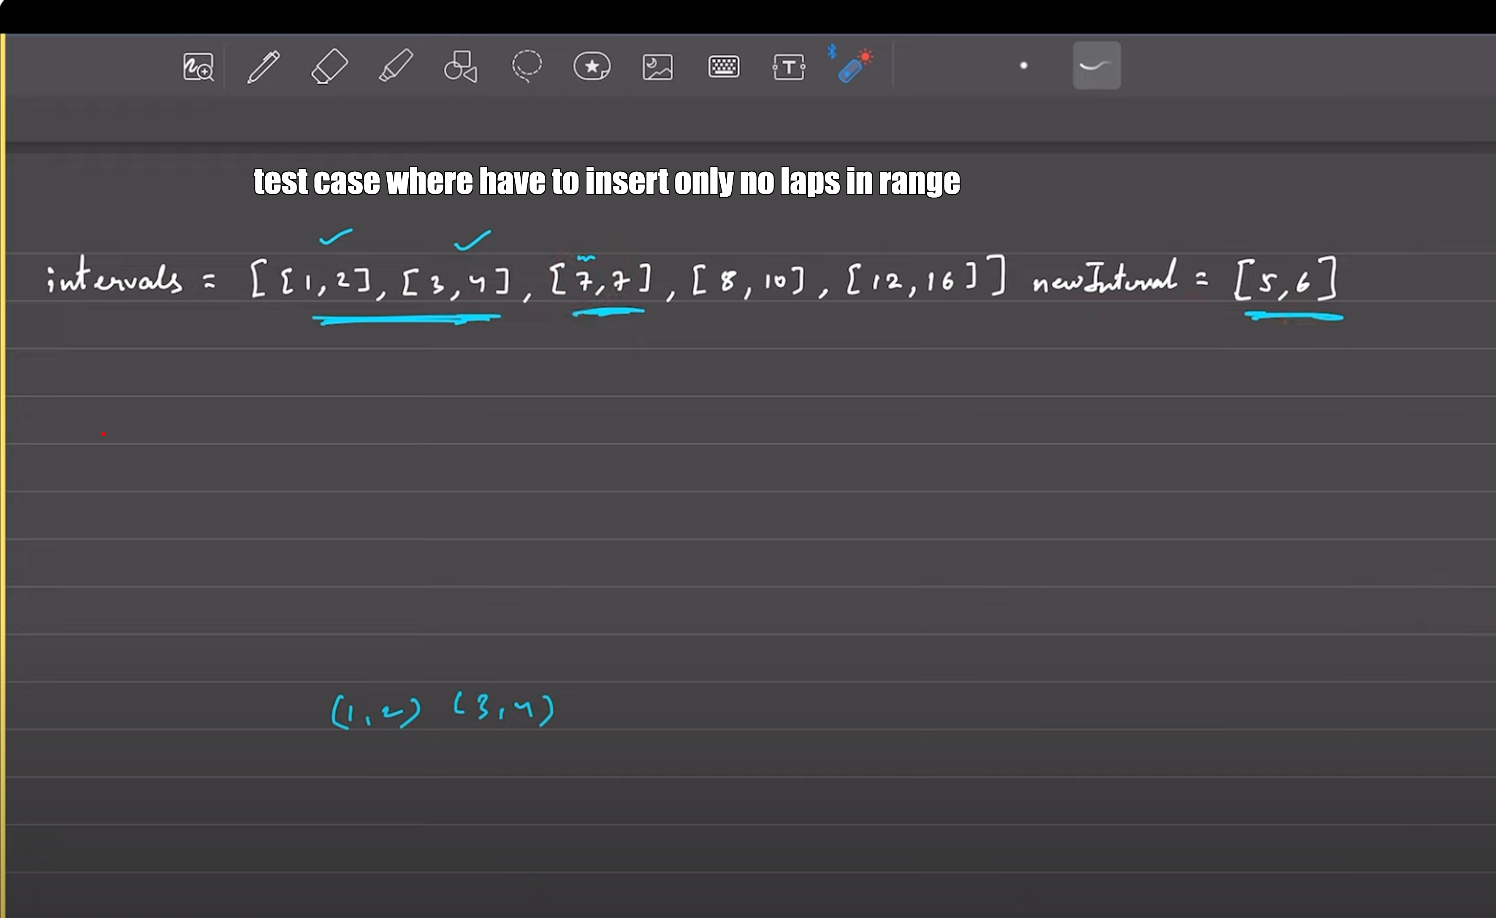 test case where have to insert only no laps in range
intervals = [[1,2], [3,4], [7,7], [8,10], [12,16]] newInterval = [5,6]
(1,2) (3,4)